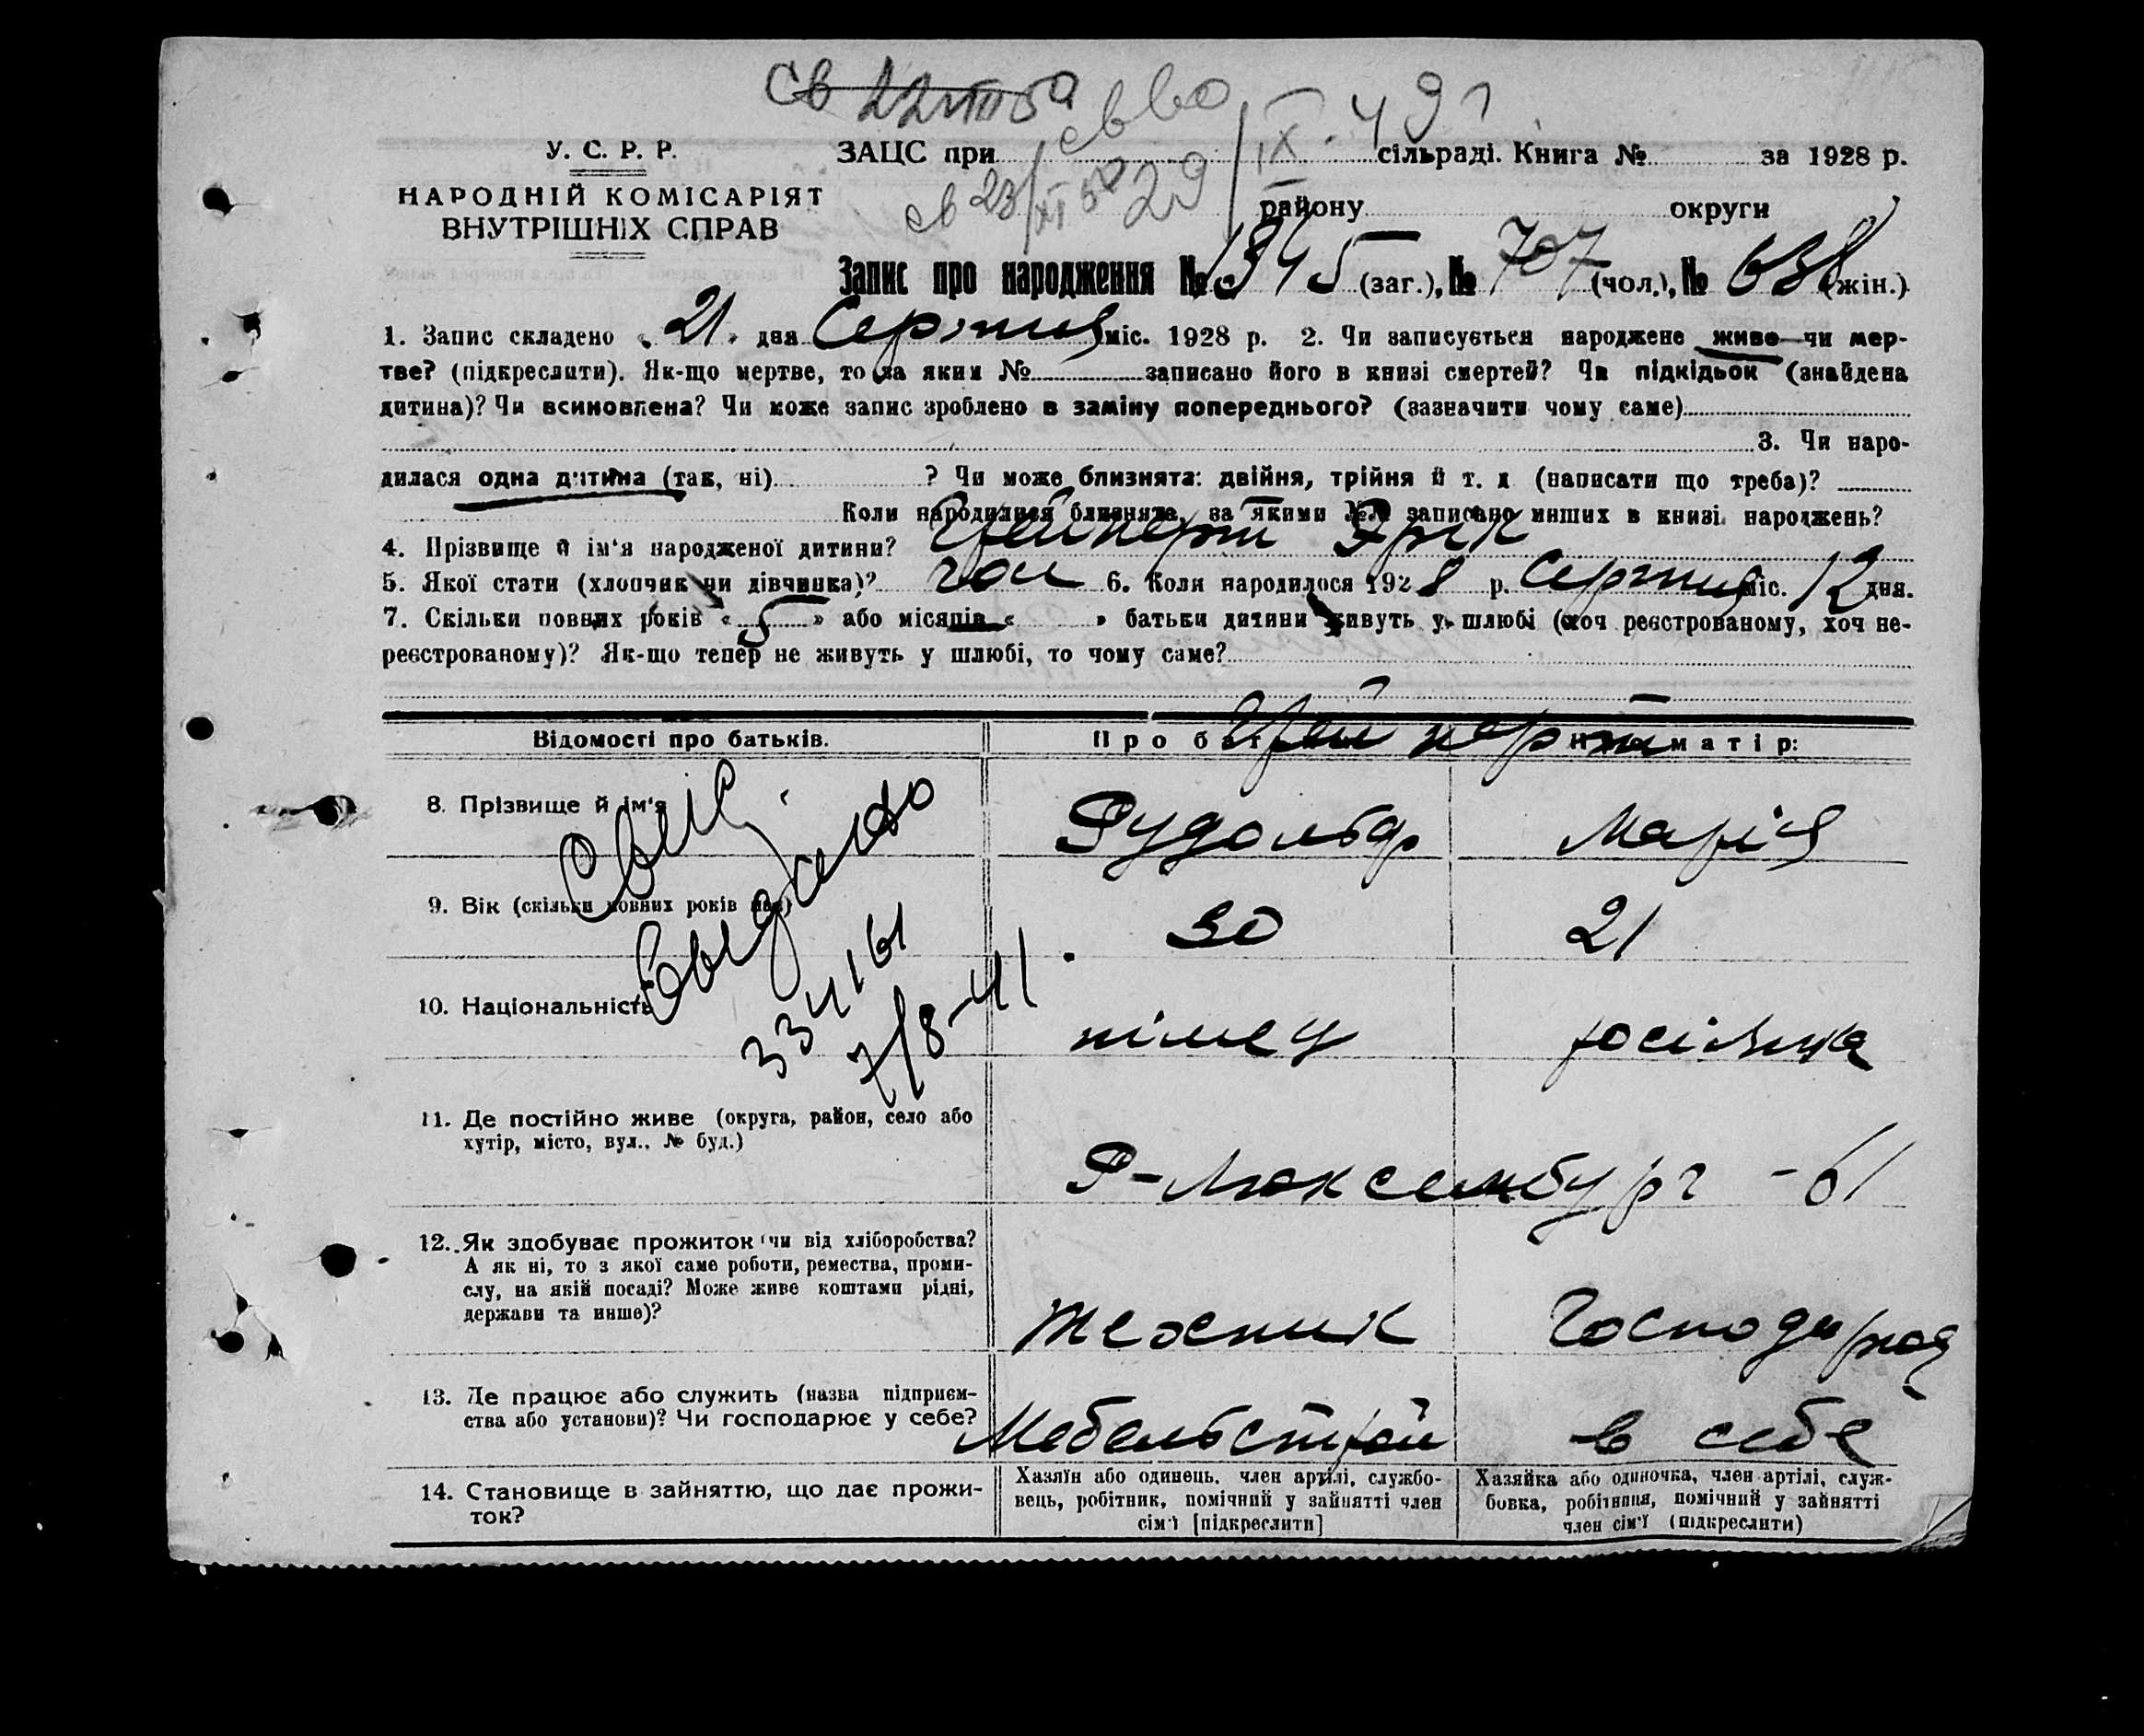 св 22/VIII 50
У. С. Р. Р. ЗАЦС при сільраді. Книга № за 1928 р.
св 23/XI 50 29/IX.49 г
НАРОДНІЙ КОМІСАРІЯТ
ВНУТРІШНІХ СПРАВ
району округи
Запис про народження № 1345 (заг.), № 707 (чол.), № 638 (жін.)
1. Запис складено „ 21 " дня Серпня міс. 1928 р. 2. Чи записується народжене живе чи мер-
тве? (підкреслити). Як-що мертве, то за яким № записано його в книзі смертей? Чи підкідьок (знайдена
дитина)? Чи всиновлена? Чи може запис зроблено в заміну попереднього? (зазначити чому саме)
3. Чи наро-
дилася одна дитина (так, ні) ? Чи може близнята: двійня, трійня й т. д (написати що треба)?
Коли народилися близнята, за якими №№ записано инших в книзі народжень?
4. Прізвище й ім'я народженої дитини? Ерік
5. Якої стати (хлопчик чи дівчинка)? чол 6. Коли народилося 1928 р. Серпня міс. 12 дня.
7. Скільки повних років « 5 » або місяців « » батьки дитини живуть у шлюбі (хоч реєстрованому, хоч не-
реєстрованому)? Як-що тепер не живуть у шлюбі, то чому саме?
Відомості про батьків. Про батька матір:
8. Прізвище й ім'я Рудольф Марія
9. Вік (скільки повних років має) 30 21
10. Національність німец росіянка
334161
7/8-41
11. Де постійно живе (округа, район, село або
хутір, місто, вул., № буд.)
Р-Люксембург - 61
12. Як здобуває прожиток (чи від хліборобства?
А як ні, то з якої саме роботи, ремества, проми-
слу, на якій посаді? Може живе коштами рідні,
держави та инше)?
технік Господиня
13. Де працює або служить (назва підприєм-
ства або установи)? Чи господарює у себе?
Мебельстрой в себе
14. Становище в зайняттю, що дає прожи-
ток?
Хазяїн або одинець, член артілі, службо-
вець, робітник, помічний у зайнятті член
сім'ї [підкреслити]
Хазяйка або одиночка, член артілі, служ-
бовка, робітниця, помічний у зайнятті
член сім'ї (підкреслити)